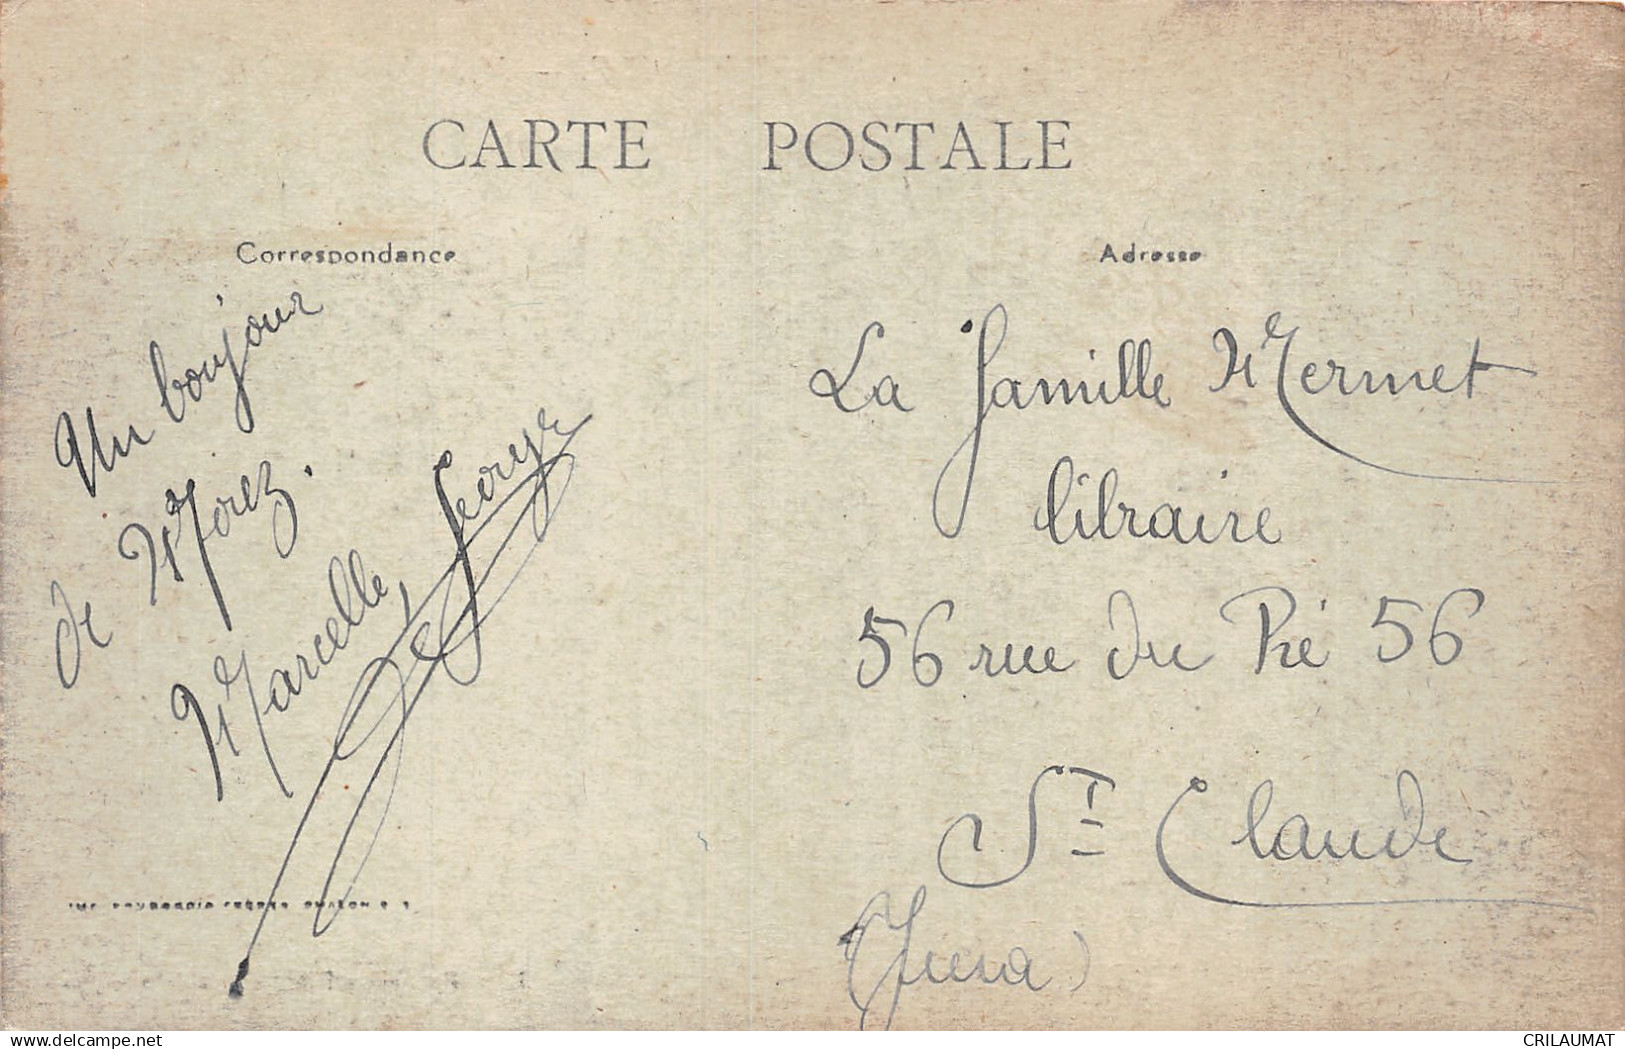 CARTE POSTALE
Correspondance
Un bonjour
de Morez.
Marcelle Georges
Adresse
La famille Mermet
libraire
56 rue du Pré 56
St Claude
(Jura)
www.delcampe.net
CRILAUMAT